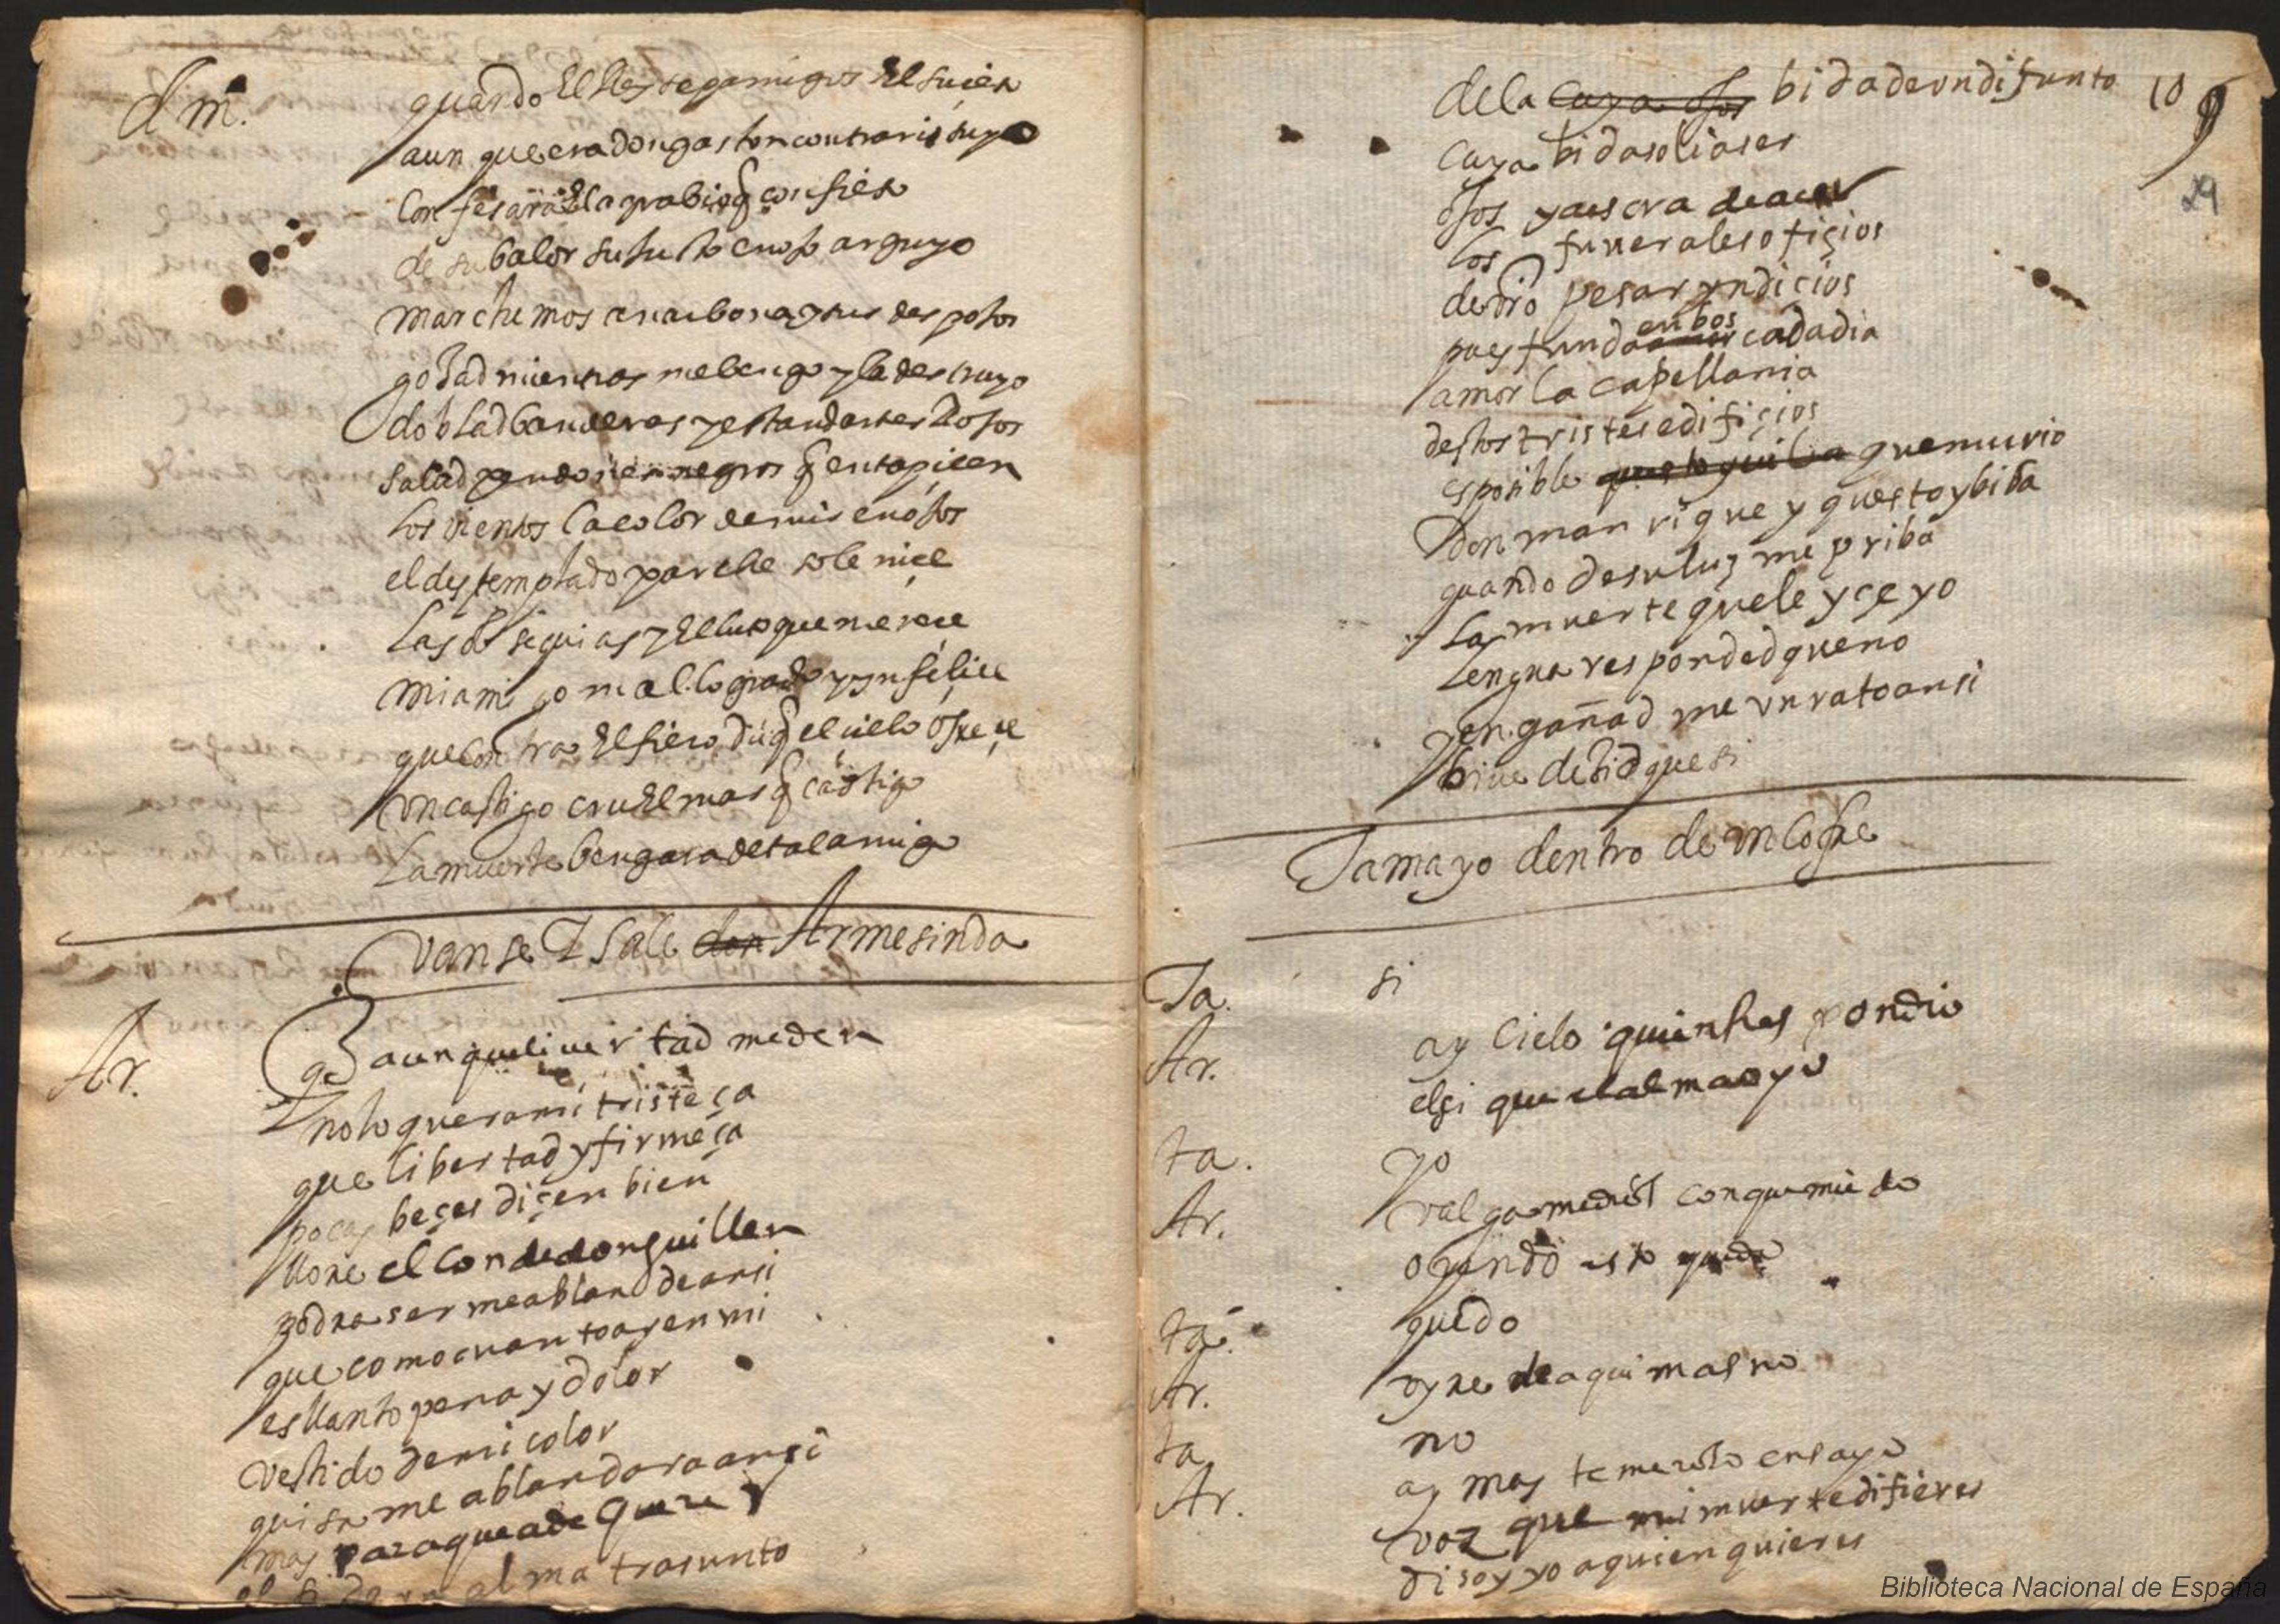 d m.
quando El Rey sepa mi gusto El juicio
aun que era don gaston contrario suyo
Confesara El agrabio q confieso
de su balor su justo enojo arguyo
marchemos a narbona y sus despojos
goçad mientras me bengo y la destruyo
doblad banderas y estandartes Rojos
sacad pendones negros q entapicen
los vientos la color de mis enojos
el destemplado parche solenice
las obsequias y El luto que merece
mi amigo mal logrado y ynfelice
que contra El fiero duq el cielo ofrece
un castigo cruel mas q castigo
la muerte bengara de tal amigo
vanse I sale don Armesinda
Ar.
que aunque livertad me den
no lo quera mi tristeça
que libertad y firmeça
pocas beçes diçen bien
llore el Conde don guillen
podra ser me ablande ansi
que como cuanto ay en mi
es llanto pena y dolor
vestido de mi color
quisa me ablandara ansi
mas para que a de querer
alma trasunto
10
9
29
de la cuya ojos bida de un difunto
cuya bida solia ser
ojos ya es ora de acer
los funerales ofiçios
de dro pesar yndiçios
pues funda en bos cada dia
amor la capellania
destos tristes edifiçios
es posible que murio
Don manrique y que estoy biba
quando de su luz me priba
la muerte que le yçe yo
lengua responded que no
y engañad me un rato ansi
bive deçid que si
Tamayo dentro de un Cofre
Ta. si
Ar. ay Cielo quien Respondio
el si que el alma oyo
ta. yo
Ar. valgame dios con que miedo
oyendo esto quedo
ta. quedo
Ar. yre de aqui mas no
ta no
Ar. ay mas temeroso ensayo
voz que mi muerte difieres
di soy yo a quien quieres
Biblioteca Nacional de España